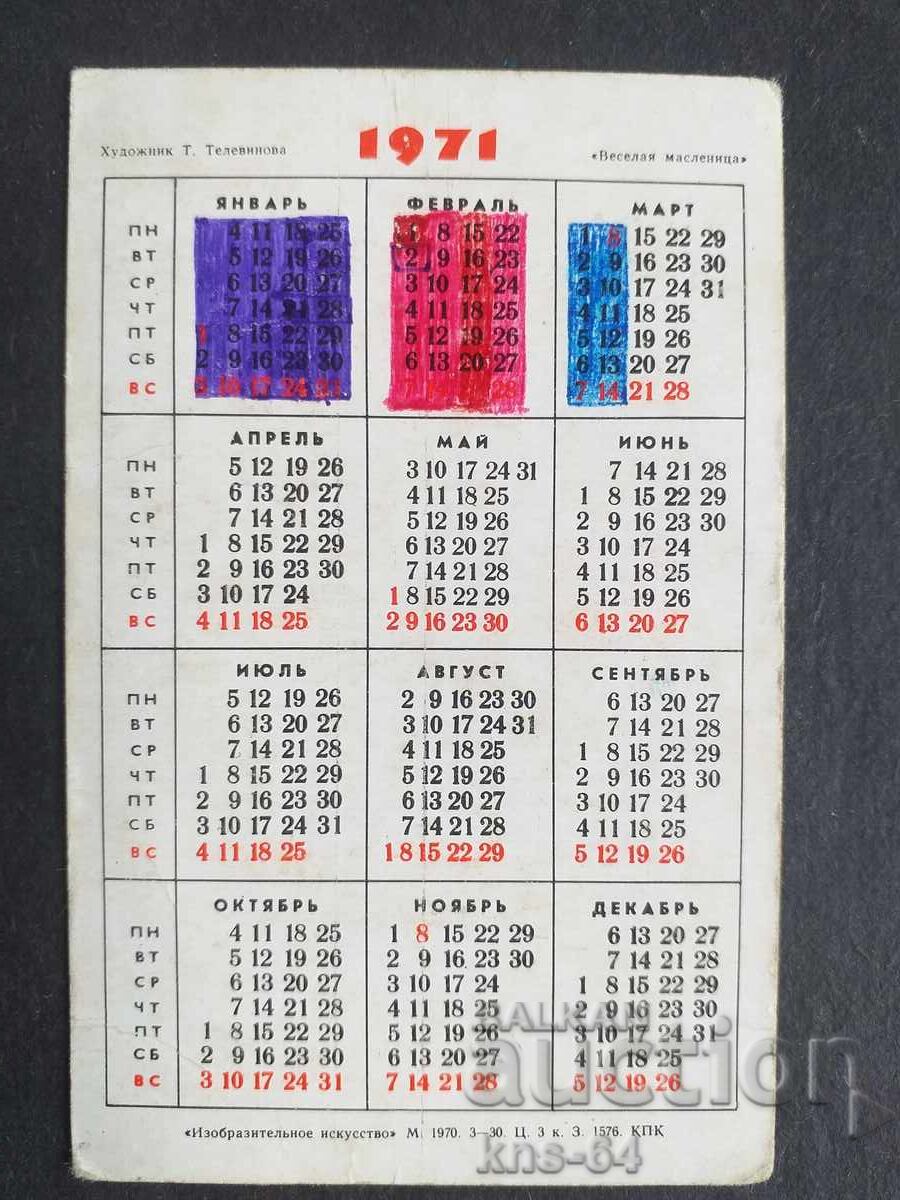 1971
Художник Т. Телевинова
«Веселая масленица»
ЯНВАРЬ ФЕВРАЛЬ МАРТ
ПН 4 11 18 25 1 8 15 22 1 8 15 22 29
ВТ 5 12 19 26 2 9 16 23 2 9 16 23 30
СР 6 13 20 27 3 10 17 24 3 10 17 24 31
ЧТ 7 14 21 28 4 11 18 25 4 11 18 25
ПТ 1 8 15 22 29 5 12 19 26 5 12 19 26
СБ 2 9 16 23 30 6 13 20 27 6 13 20 27
ВС 3 10 17 24 31 28 7 14 21 28
АПРЕЛЬ МАЙ ИЮНЬ
ПН 5 12 19 26 3 10 17 24 31 7 14 21 28
ВТ 6 13 20 27 4 11 18 25 1 8 15 22 29
СР 7 14 21 28 5 12 19 26 2 9 16 23 30
ЧТ 1 8 15 22 29 6 13 20 27 3 10 17 24
ПТ 2 9 16 23 30 7 14 21 28 4 11 18 25
СБ 3 10 17 24 1 8 15 22 29 5 12 19 26
ВС 4 11 18 25 2 9 16 23 30 6 13 20 27
ИЮЛЬ АВГУСТ СЕНТЯБРЬ
ПН 5 12 19 26 2 9 16 23 30 6 13 20 27
ВТ 6 13 20 27 3 10 17 24 31 7 14 21 28
СР 7 14 21 28 4 11 18 25 1 8 15 22 29
ЧТ 1 8 15 22 29 5 12 19 26 2 9 16 23 30
ПТ 2 9 16 23 30 6 13 20 27 3 10 17 24
СБ 3 10 17 24 31 7 14 21 28 4 11 18 25
ВС 4 11 18 25 1 8 15 22 29 5 12 19 26
ОКТЯБРЬ НОЯБРЬ ДЕКАБРЬ
ПН 4 11 18 25 1 8 15 22 29 6 13 20 27
ВТ 5 12 19 26 2 9 16 23 30 7 14 21 28
СР 6 13 20 27 3 10 17 24 1 8 15 22 29
ЧТ 7 14 21 28 4 11 18 25 2 9 16 23 30
ПТ 1 8 15 22 29 5 12 19 26 3 10 17 24 31
СБ 2 9 16 23 30 6 13 20 27 4 11 18 25
ВС 3 10 17 24 31 7 14 21 28 5 12 19 26
BALKAN
auction
«Изобразительное искусство» М. 1970. 3—30. Ц. 3 к. З. 1576. КПК
kns-64